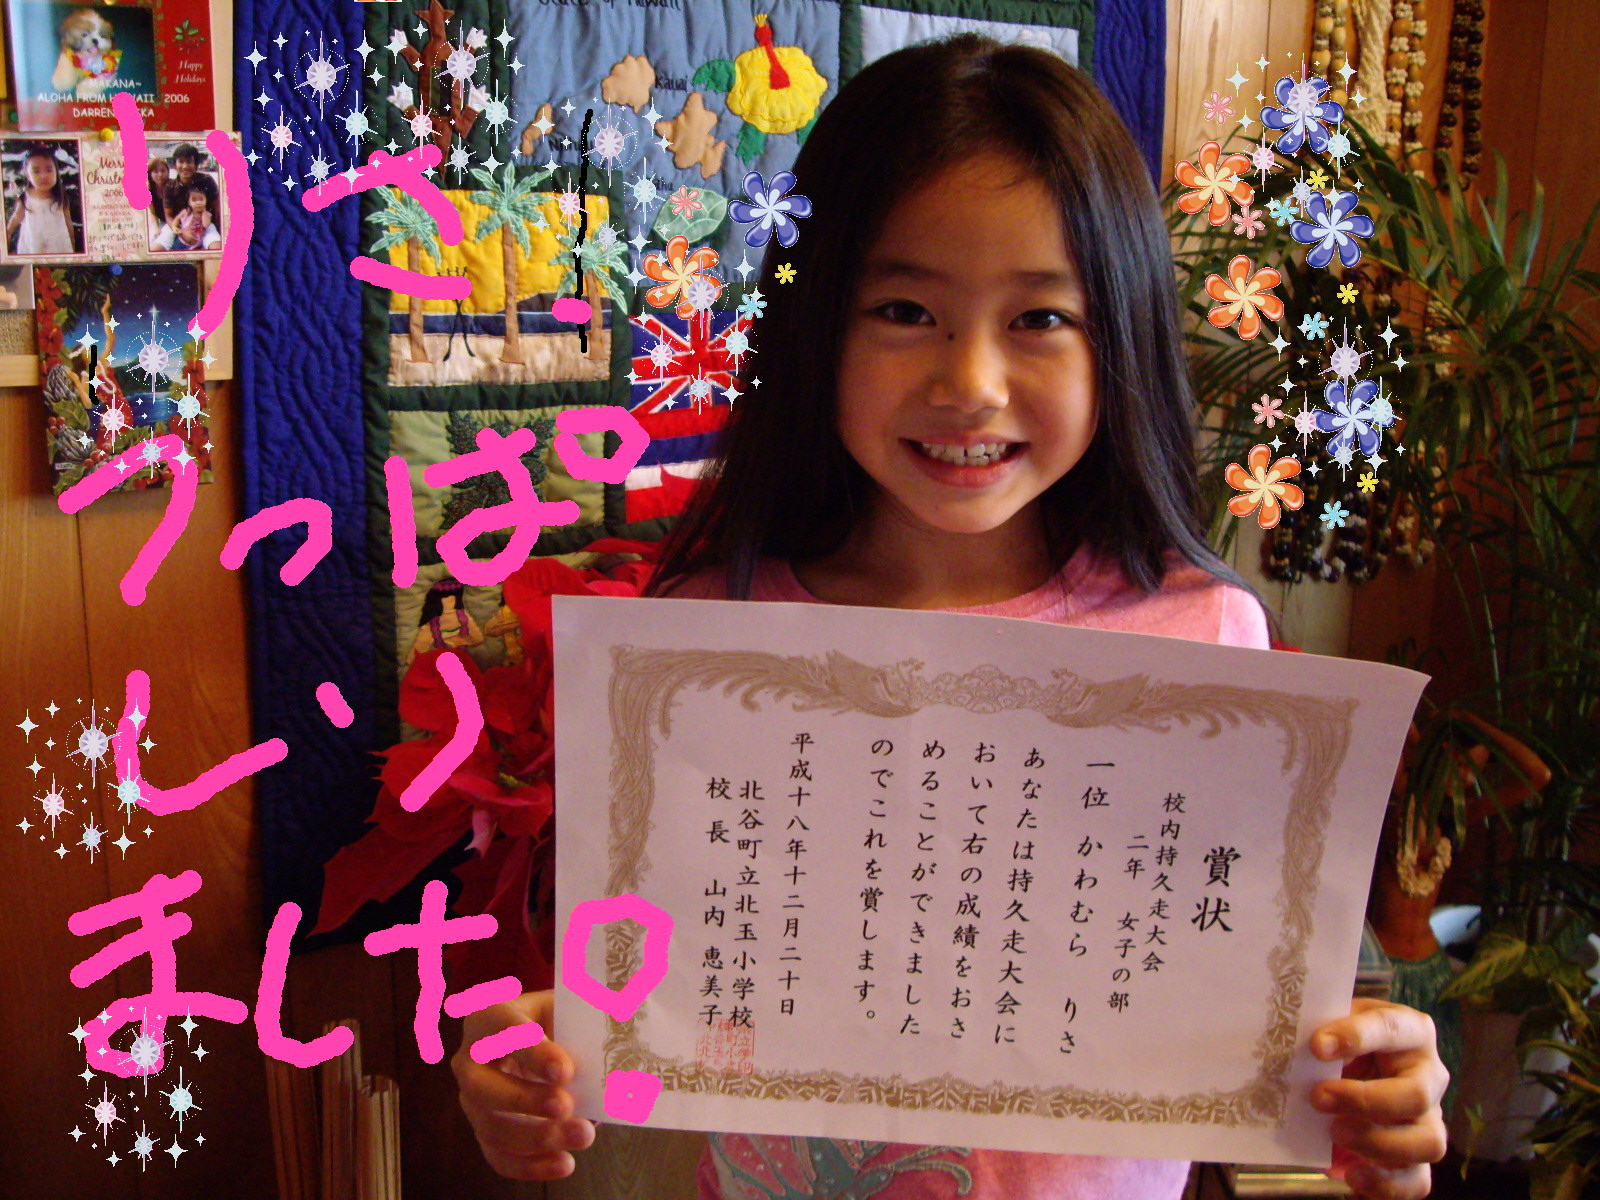 State of Hawaii
Kauai
Happy
Holidays
MAKANA~
ALOHA FROM HAWAII 2006
Merry
Christmas
2006
りさ!
うっぱ
しい)
ました!
賞状
校内持久走大会
二年 女子の部
一位 かわむら りさ
あなたは持久走大会に
おいて右の成績をおさ
めることができました
のでこれを賞します。
平成十八年十二月二十日
北谷町立北玉小学校
校長 山内 恵美子